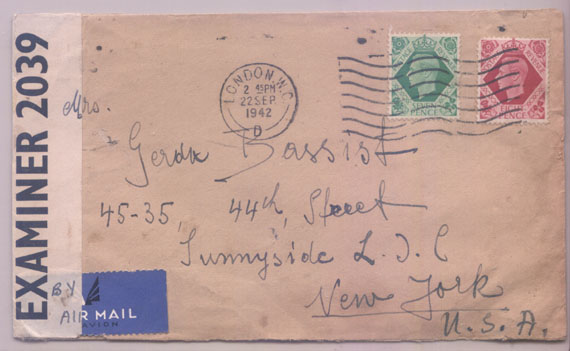 EXAMINER 2039
LONDON. W.C.
2 45PM
22 SEP
1942
D
SEVEN PENCE
EIGHT PENCE
Mrs.
Gerda Bassist
45-35, 44th, Street
Sunnyside L. I. C
New York
U.S.A.
BY
AIR
R MAIL
AVION